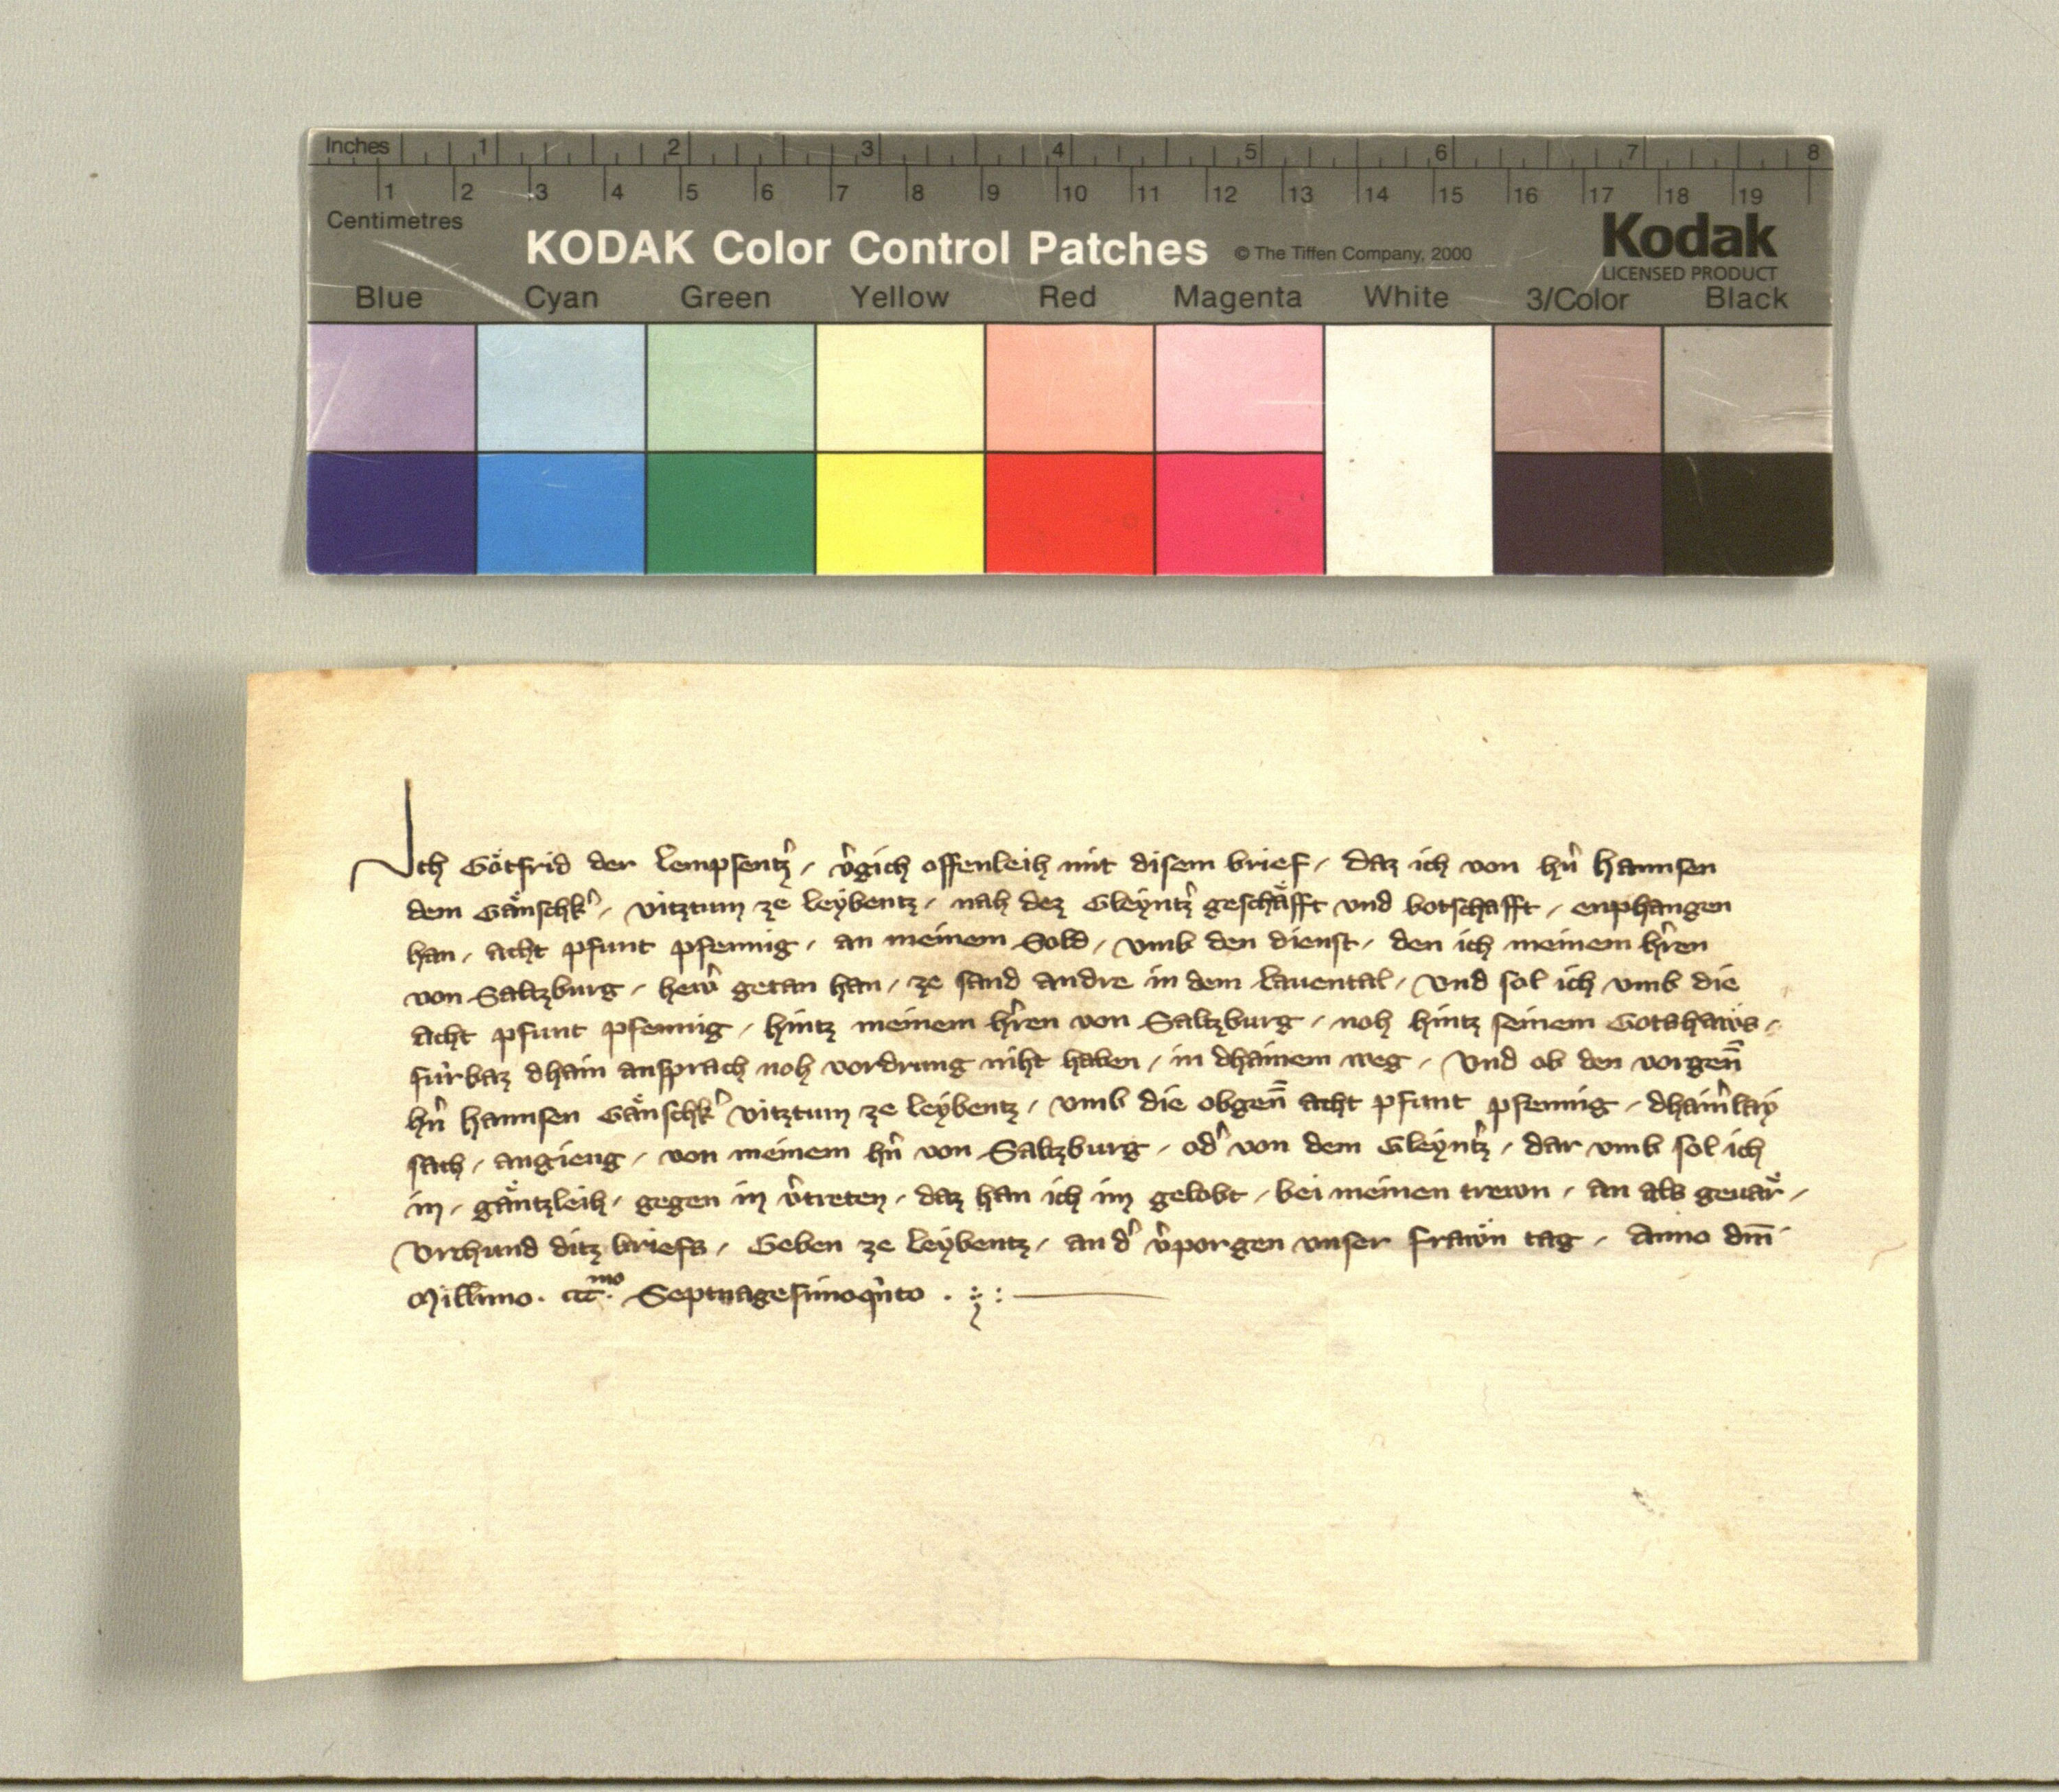 Inches 1 2 3 4 5 6 7 8
1 2 3 4 5 6 7 8 9 10 11 12 13 14 15 16 17 18 19
Centimetres
KODAK Color Control Patches © The Tiffen Company, 2000 Kodak
LICENSED PRODUCT
Blue Cyan Green Yellow Red Magenta White 3/Color Black
Ich Götfrid der Lempsentz̉ / v̉gich offenleih mit disem brief / daz ich von hn̉ Hannsen
dem Gänschk̉ / vitztum ze Leybentz / nah dez Gleyntz̉ geschäfft vnd botschafft / enphangen
han / acht pfunt pfennig / an meinem Sold / vmb den dienst / den ich meinem hr̉en
von Saltzburg / hew̉ getan han / ze sand Andre in dem Lauental / Vnd sol ich vmb die
acht pfunt pfennig / hintz meinem hr̉en von Saltzburg / noh hintz seinem Gotshaws /
fürbaz dhain ansprach noh vordrung niht haben / in dhainem weg / Vnd ob den vorgen̄
hn̉ Hannsen Gänschk̉ vitztum ze Leybentz / vmb die obgen̄ acht pfunt pfennig / dhain̉lay
sach / angieng / von meinem hn̉ von Saltzburg / od̉ von dem Gleyntz̉ / dar vmb sol ich
in / gäntzleih / gegen in v̉treten / daz han ich im gelobt / bei meinen trewn / an als geuär /
Vrchund ditz briefs / Geben ze Leybentz / an d̉ v̉porgen vnser frawn tag / Anno dm̄
Mill̄imo . ccc.mo Septuagesimoqͥnto .